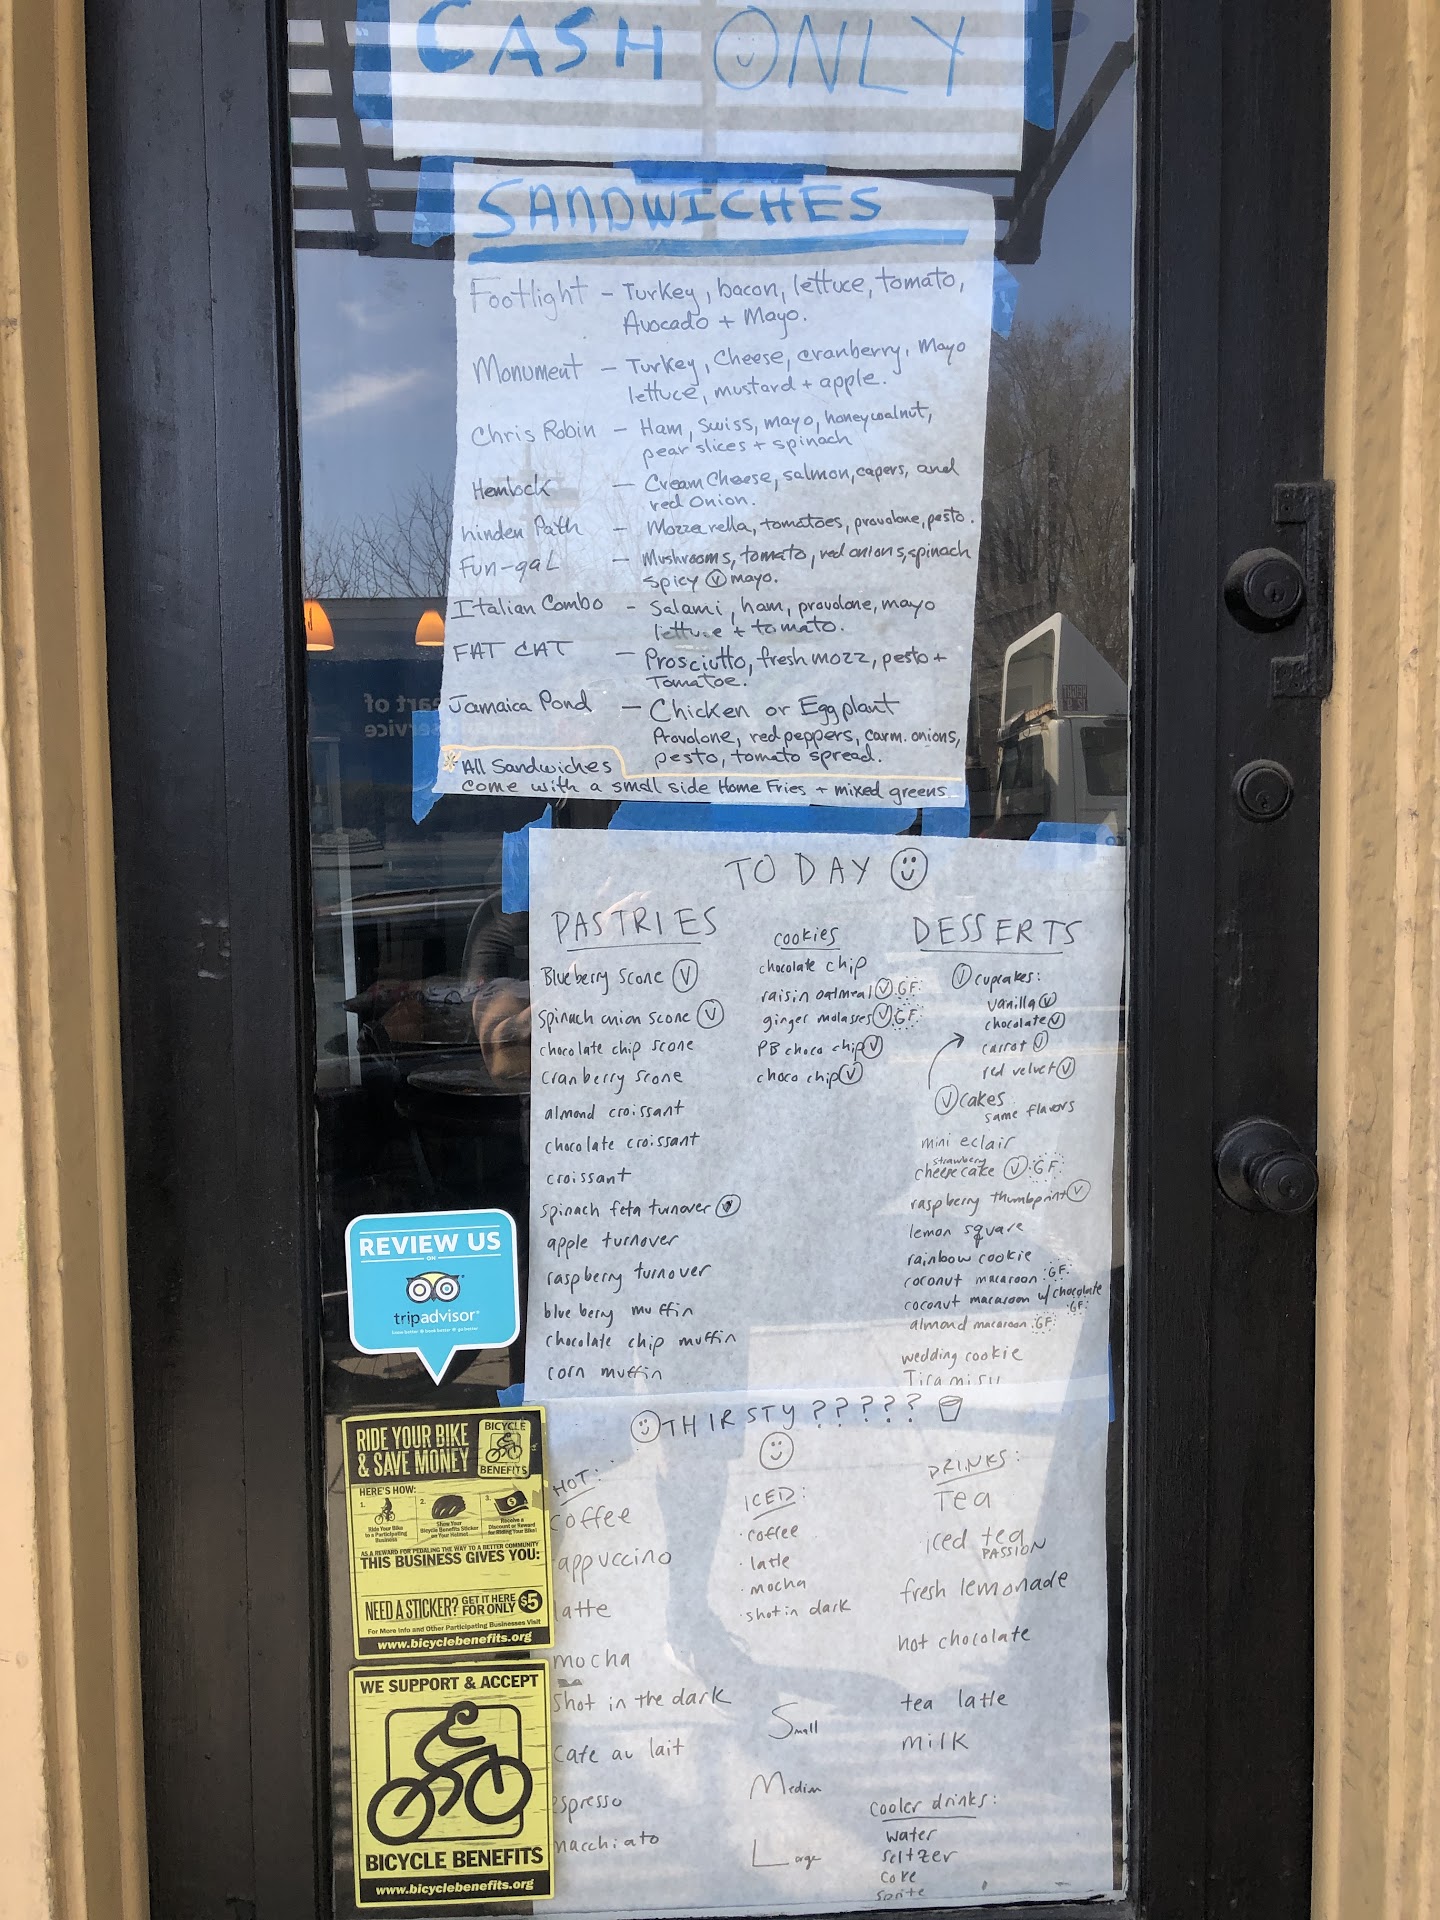 CASH ONLY
SANDWICHES
Footlight - Turkey, bacon, lettuce, tomato,
Avocado + Mayo.
Monument - Turkey, Cheese, cranberry, Mayo
lettuce, mustard + apple.
Chris Robin - Ham, swiss, mayo, honeywalnut,
pear slices + spinach
Hemlock - Cream Cheese, salmon, capers, and
red onion.
hinden Path - Mozzarella, tomatoes, provolone, pesto.
Fun-gal - Mushrooms, tomato, red onions, spinach
spicy Ⓥ mayo.
Italian Combo - Salami, ham, provolone, mayo
lettuce + tomato.
FAT CAT - Prosciutto, fresh mozz, pesto +
Tomatoe.
Jamaica Pond - Chicken or Eggplant
Provolone, red peppers, carm. onions,
pesto, tomato spread.
* All Sandwiches
come with a small side Home Fries + mixed greens
TODAY
PASTRIES
Blueberry scone Ⓥ
Spinach onion scone Ⓥ
chocolate chip scone
cranberry scone
almond croissant
chocolate croissant
croissant
spinach feta turnover Ⓥ
apple turnover
raspberry turnover
blueberry muffin
chocolate chip muffin
corn muffin
cookies
chocolate chip
raisin oatmeal Ⓥ GF
ginger molasses Ⓥ GF
PB choco chip Ⓥ
choco chip Ⓥ
DESSERTS
Ⓥ cupcakes:
vanilla Ⓥ
chocolate Ⓥ
carrot Ⓥ
red velvet Ⓥ
Ⓥ cakes
same flavors
mini eclair
strawberry
cheesecake Ⓥ GF
raspberry thumbprint Ⓥ
lemon square
rainbow cookie
coconut macaroon GF
coconut macaroon w/ chocolate
GF
almond macaroon GF
wedding cookie
Tiramisu
THIRSTY?????
HOT:
coffee
appuccino
latte
mocha
Shot in the dark
cafe au lait
espresso
macchiato
ICED:
· coffee
· latte
· mocha
· shot in dark
Small
Medium
Large
DRINKS:
Tea
iced tea
PASSION
fresh lemonade
hot chocolate
tea latte
milk
cooler drinks:
water
seltzer
coke
sprite
REVIEW US
ON
tripadvisor
RIDE YOUR BIKE
& SAVE MONEY
BICYCLE
BENEFITS
HERE'S HOW:
1. Ride Your Bike
to a Participating
Business
2. Show Your
Bicycle Benefits Sticker
or Your Helmet
3. Receive a
Discount or Reward
for Riding Your Bike!
AS A REWARD FOR PEDALING THE WAY TO A BETTER COMMUNITY
THIS BUSINESS GIVES YOU:
NEED A STICKER? GET IT HERE
FOR ONLY $5
For More Info and Other Participating Businesses Visit
www.bicyclebenefits.org
WE SUPPORT & ACCEPT
BICYCLE BENEFITS
www.bicyclebenefits.org